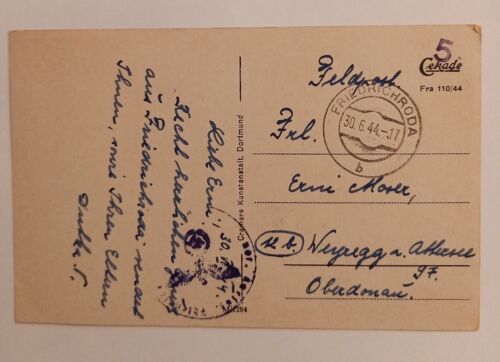 5
Cekade
Fra 110/44
Feldpost.
FRIEDRICHRODA
30.6.44.-17
b
Frl.
Erni Moser,
(12 b.) Weyregg a. Attersee
97.
Oberdonau.
Cramers Kunstanstalt, Dortmund
Liebe Erni, 30.
Recht herzlichen
aus Friedrichroda sendet
Ihnen, wie Ihren Eltern